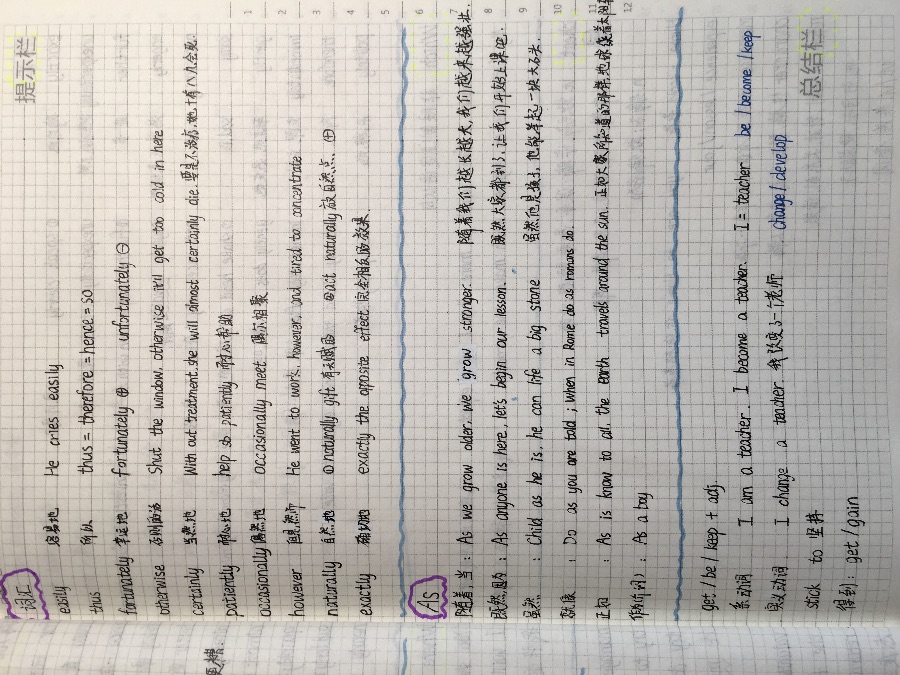 提示栏
词汇
easily 容易地 He cries easily
thus 所以 thus = therefore = hence = so
fortunately 幸运地 fortunately ⊕ unfortunately ⊖
otherwise 否则 Shut the window, otherwise it'll get too cold in here
certainly 当然地 With out treatment, she will almost certainly die. 要是不治疗,她十有八九会死.
patiently 耐心地 help sb patiently 耐心帮助
occasionally 偶然地 occasionally meet 偶尔相聚
however 但是,然而 He went to work, however, and tired to concentrate
naturally 自然地 ①naturally gift 有天赋的 ②act naturally 放自然点 ⊕
exactly 确切地 exactly the opposite effect 完全相反的效果.
As
随着,当 : As we grow older, we grow stronger. 随着我们越长越大,我们越来越强壮.
既然,因为 : As anyone is here, let's begin our lesson. 既然大家都到了,让我们开始上课吧.
虽然 : Child as he is, he can life a big stone 虽然他是孩子,他能举起一块大石头.
就像 : Do as you are told ; when in Rome do as romans do.
正如 : As is know to all, the earth travels around the sun. 正如大家所知道的那样,地球绕着太阳
作为(介词) : As a boy
get / be / keep + adj.
系动词 I am a teacher. I become a teacher. I = teacher be / become / keep
实义动词 I change a teacher. 我改变了一个老师 change / develop
stick to 坚持
得到 : get / gain
总结栏
1
2
3
4
5
6
7
8
9
10
11
12